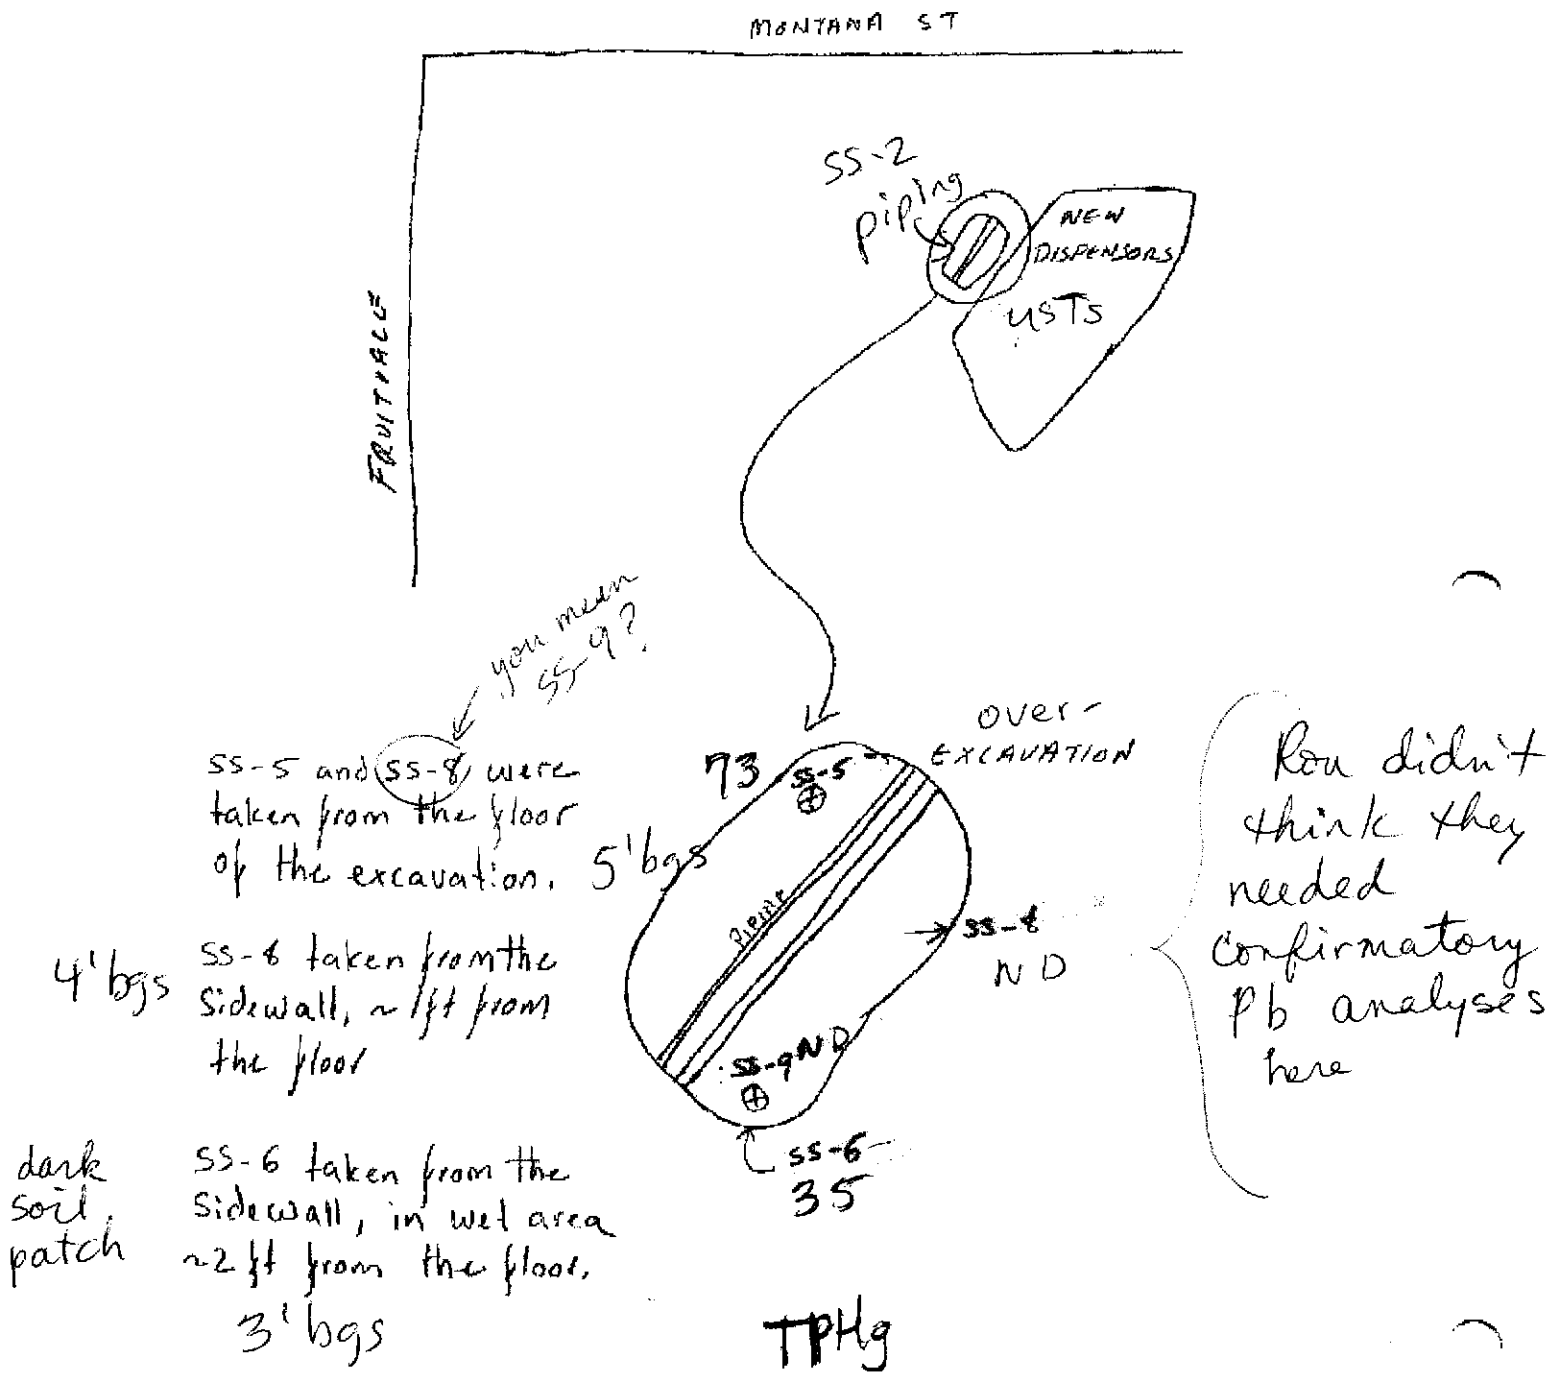 MONTANA ST
FRUITVALE
SS-2
piping
NEW
DISPENSORS
USTs
you mean
SS-9?
SS-5 and SS-8 were
taken from the floor
of the excavation.
5' bgs
4' bgs
SS-8 taken from the
sidewall, ~1ft from
the floor
dark
soil
patch
SS-6 taken from the
sidewall, in wet area
~2 ft from the floor.
3' bgs
over-
EXCAVATION
73
SS-5
PIPING
SS-8
ND
SS-9 ND
SS-6
35
TPHg
Ron didn't
think they
needed
confirmatory
Pb analyses
here